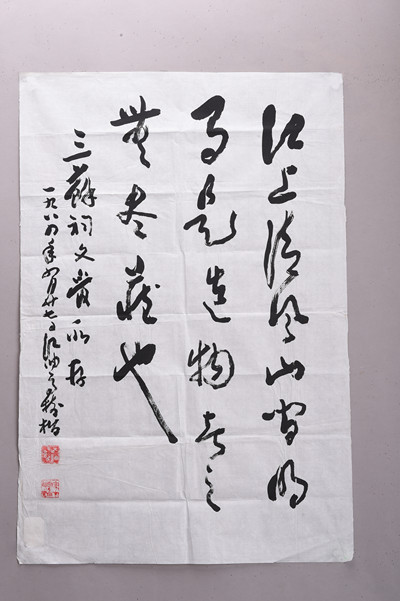 江上清風山間明
月是造物者之
無盡藏也
三蘇祠文管所存
一九八四年四月廿七日江油